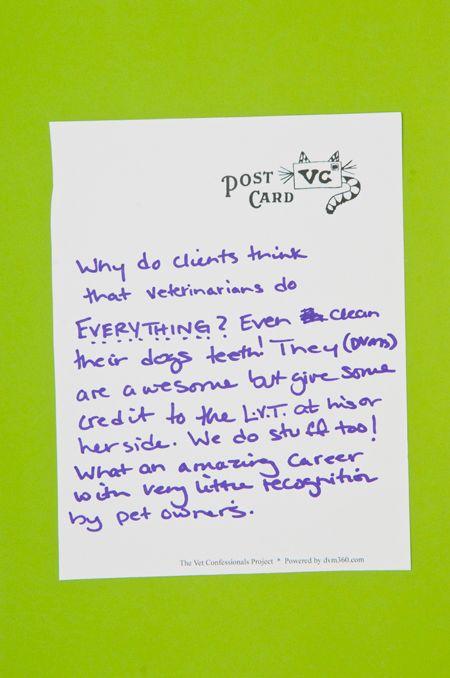 POST
CARD
VC
Why do clients think
that veterinarians do
EVERYTHING? Even clean
their dogs teeth! They (DVMs)
are awesome but give some
credit to the L.V.T. at his or
her side. We do stuff too!
What an amazing career
with very little recognition
by pet owners.
The Vet Confessionals Project * Powered by dvm360.com